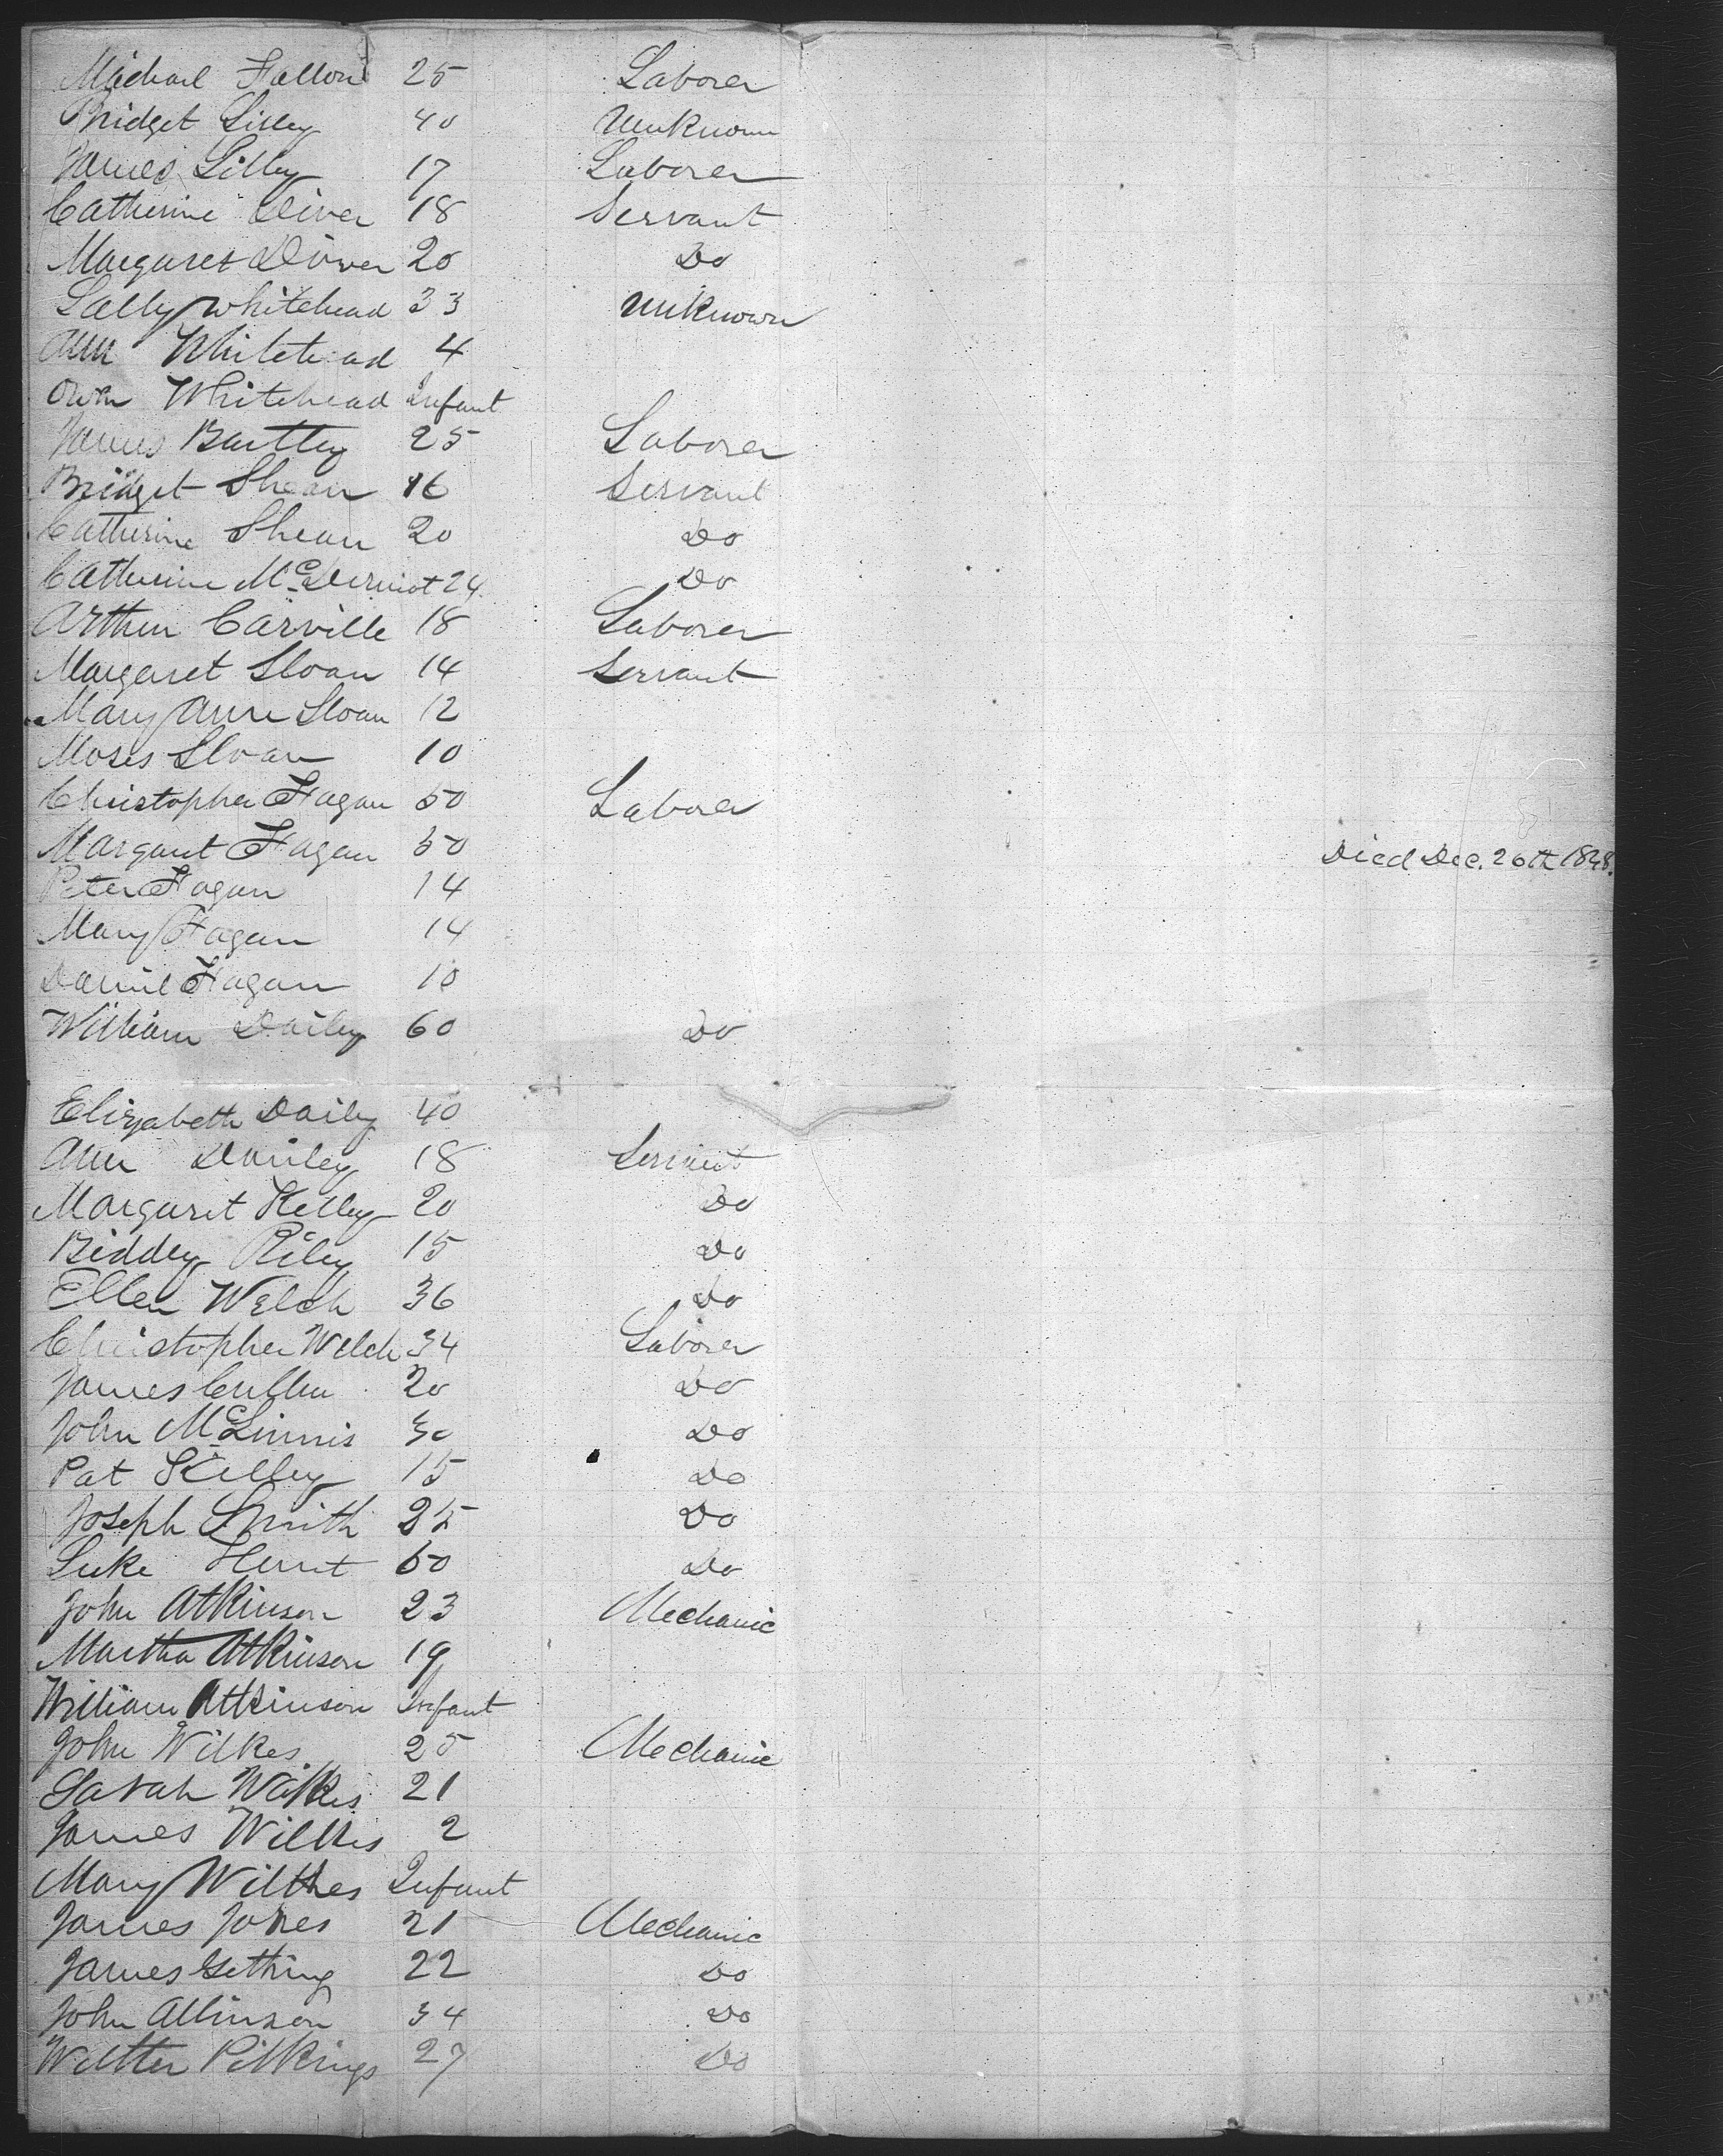 Michael Fallon 25 Laborer
Bridget Lilley 40 Unknown
James Lilley 17 Laborer
Catherine Diver 18 Servant
Margaret Diver 20 Do
Sally Whitehead 33 Unknown
Ann Whitehead 4
Owen Whitehead Infant
James Bartley 25 Laborer
Bridget Shean 16 Servant
Catherine Shean 20 Do
Catherine McDermot 24 Do
Arthur Carville 18 Laborer
Margaret Sloan 14 Servant
Mary Anne Sloan 12
Moses Sloan 10
Christopher Fagan 50 Laborer
Margaret Fagan 50 Died Dec. 26th 1848.
Peter Fagan 14
Mary Fagan 14
Daniel Fagan 10
William Dailey 60 Do
Elizabeth Daily 40
Ann Dailey 18 Servant
Margaret Kelley 20 Do
Biddey Riley 15 Do
Ellen Welch 36 Do
Christopher Welch 34 Laborer
James Cullen 20 Do
John McGinnis 30 Do
Pat Kelley 15 Do
Joseph Smith 25 Do
Luke Hunt 50 Do
John Atkinson 23 Mechanic
Martha Atkinson 19
William Atkinson Infant
John Wilkes 25 Mechanic
Sarah Wilkes 21
James Wilkes 2
Mary Wilkes Infant
James Jones 21 Mechanic
James Gething 22 Do
John Allinson 34 Do
Walter Pilkings 27 Do